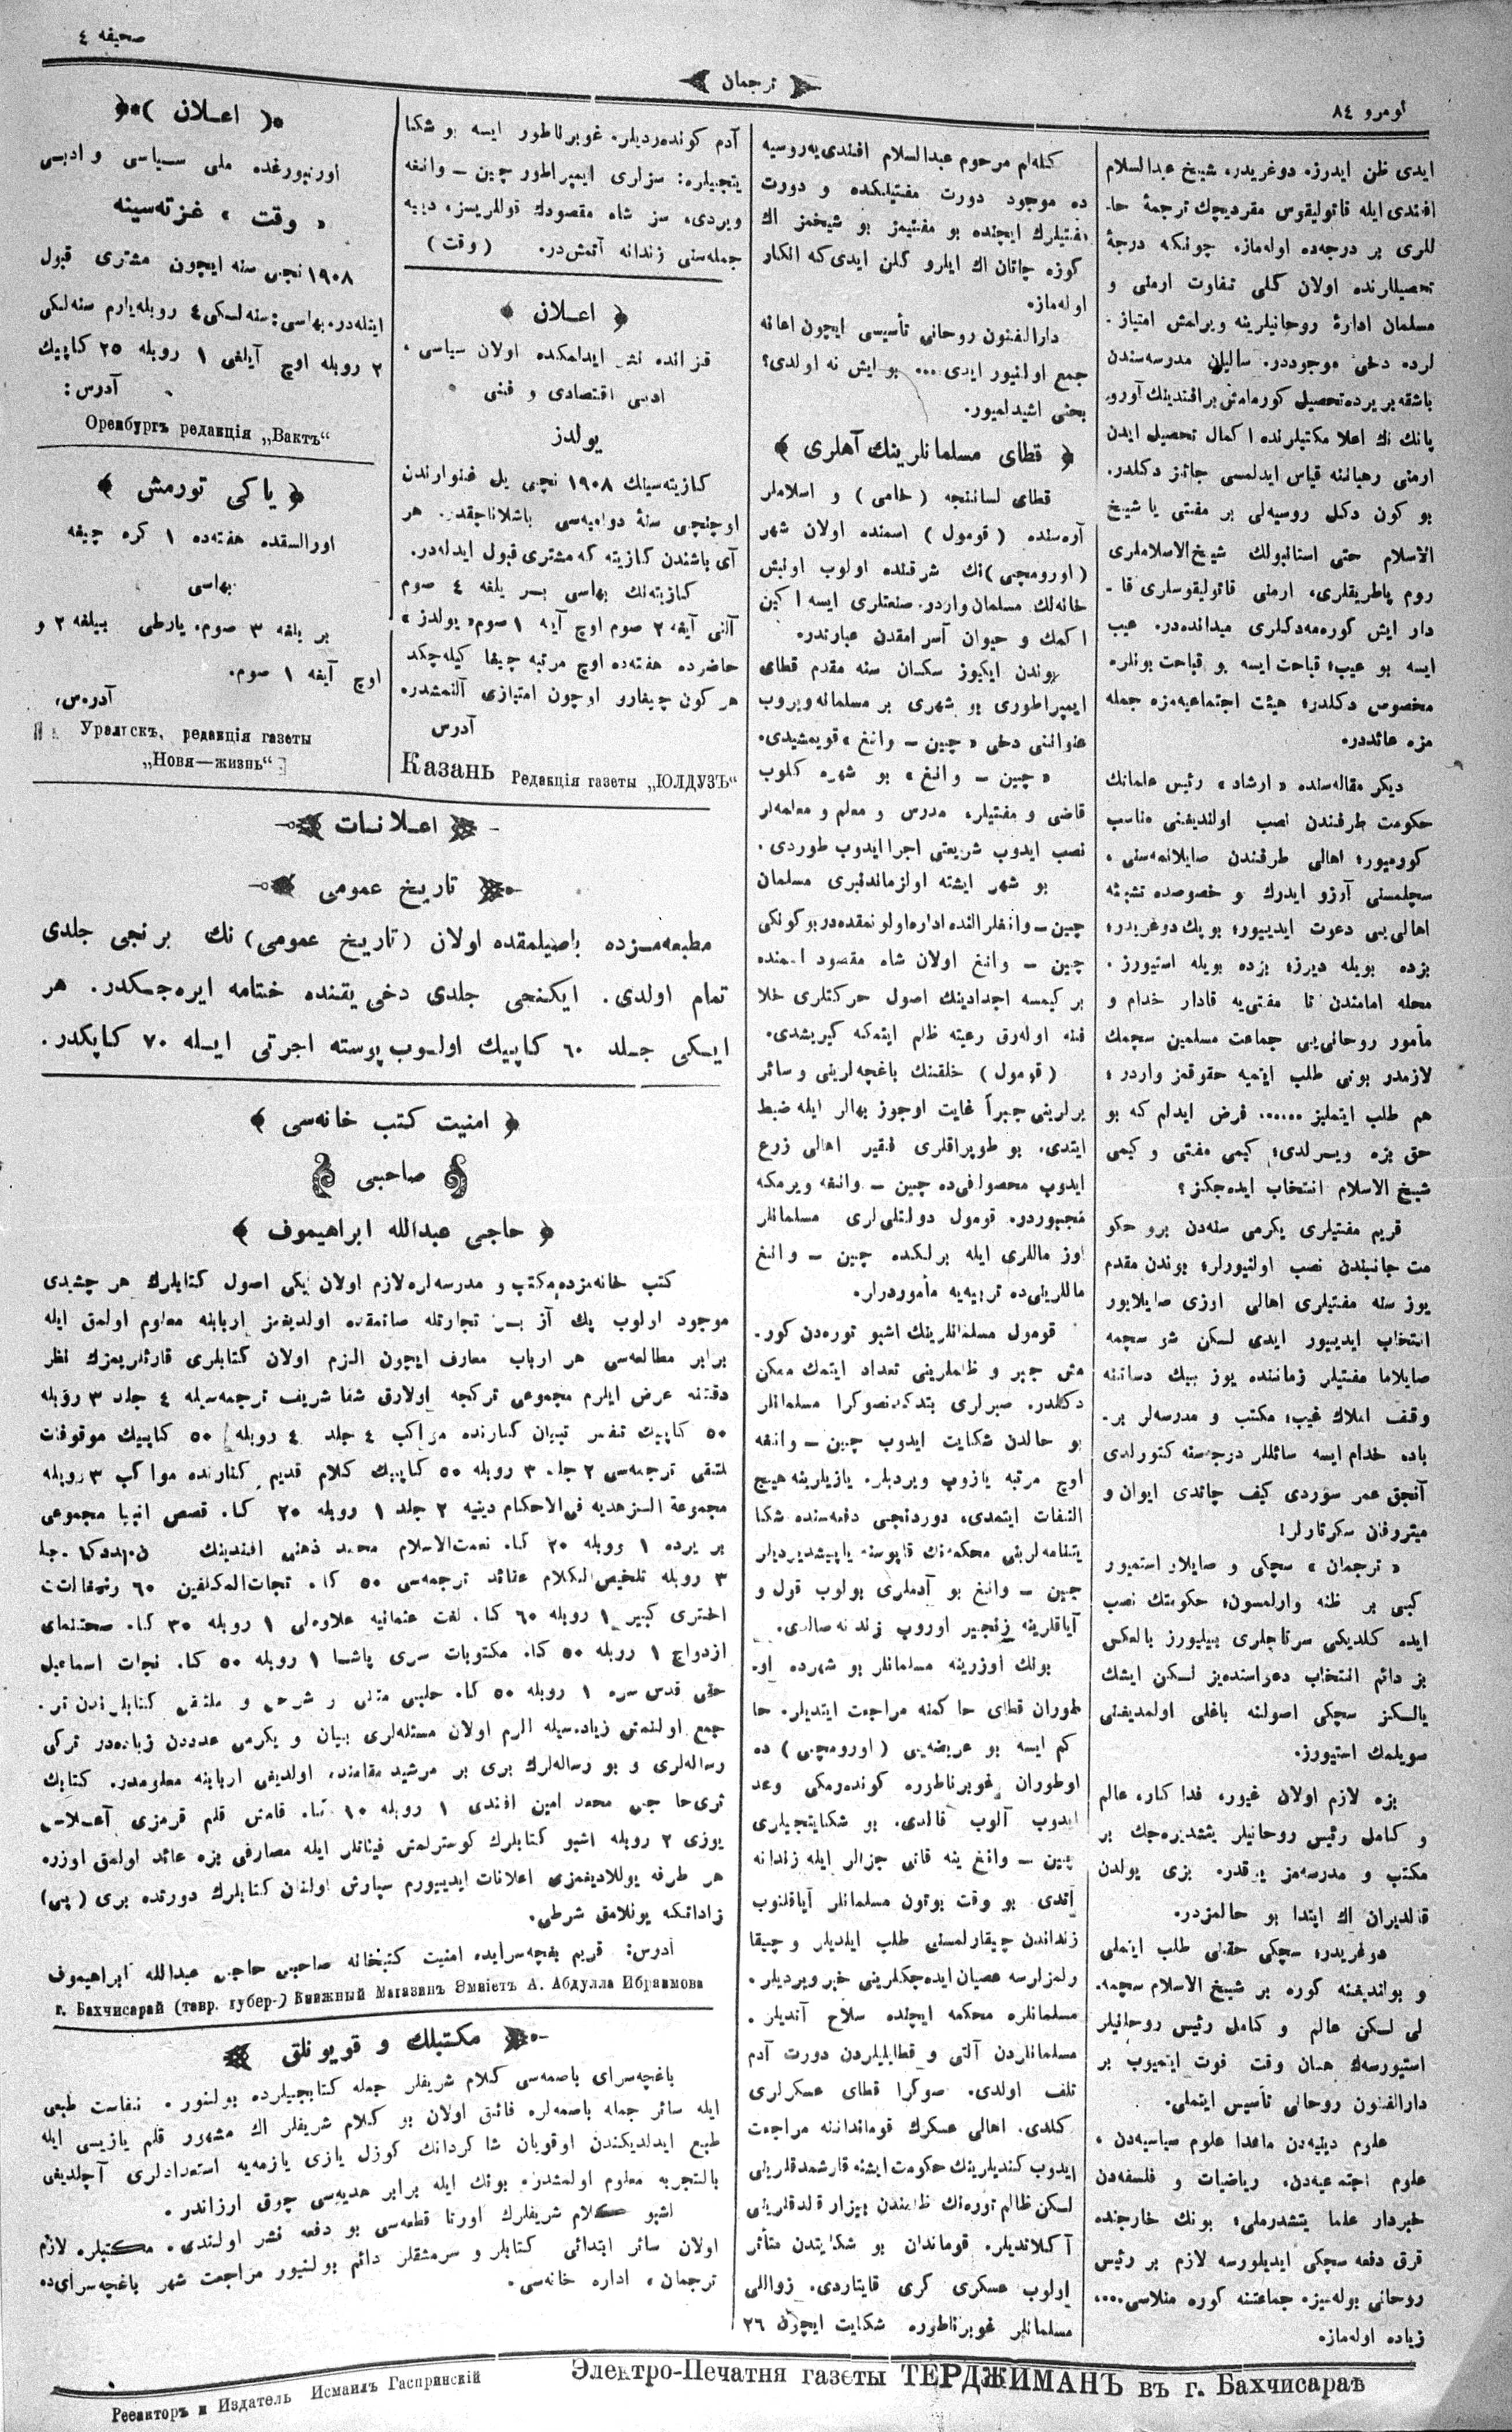 صحيفه ٤
ترجمان
نومرو ٨٤
ايدى ظن ايدرز. دوغريدر، شيخ عبدالسلام
افندى ايله قاتوليقوس مقرديچك ترجمۀ حا-
للرى بر درجه‌ده اوله‌ماز. چونكه درجۀ
تحصيللرنده اولان كلى تفاوت ارمنى و
مسلمان ادارۀ روحانيلرينه ويرلمش امتياز-
لرده دخى موجوددر. ساليان مدرسه‌سندن
باشقه بر يرده تحصيل كورمامش بر افندينك آورو
پانك اعلا مكتبلرنده اكمال تحصيل ايدن
ارمنى رهباننه قياس ايدلمسى جائز دكلدر.
بو كون دكل روسيه‌لى بر مفتى يا شيخ
الاسلام حتى استانبولك شيخ‌الاسلاملرى
روم پاطريقلرى، ارمنى قاتوليقوسلرى قا-
دار ايش كوره‌مه‌دكلرى ميدانده‌در. عيب
ايسه بو عيب؛ قباحت ايسه بو قباحت بونلره
مخصوص دكلدر؛ هيئت اجتماعيه‌مزه جمله
مزه عائددر.
ديكر مقاله‌سنده «ارشاد» رئيس علمانك
حكومت طرفندن نصب اولنديغنى مناسب
كورميور؛ اهالى طرفندن صايلانمه‌سنى،
سچلمسنى آرزو ايدرك بو خصوصده تشبثه
اهالى‌يى دعوت ايدييور؛ بو پك دوغريدر؛
بزده بويله ديرز؛ بزده بويله استيورز.
محله امامندن تا مفتى‌يه قادار خدام و
مأمور روحانى‌يى جماعت مسلمين سچمك
لازمدر بونى طلب ايتميه حقوقمز واردر؛
هم طلب ايتمليز ...... فرض ايدلم كه بو
حق بزه ويرلدى؛ كيمى مفتى و كيمى
شيخ الاسلام انتخاب ايده‌جكز؟
قريم مفتيلرى يكرمى سنه‌دن برو حكو
مت جانبندن نصب اولنيورلر؛ بوندن مقدم
يوز سنه مفتيلرى اهالى اوزى صايلايور
انتخاب ايدييور ايدى لسكن شو سچمه
صايلاما مفتيلر زماننده يوز بيك دساتنه
وقف املاك غيب؛ مكتب و مدرسه‌لر بر-
باده خدام ايسه سائللر درجه‌سنه كتورلدى
آنجق عمر سوردى كيف چاتدى ايوان و
ميتروفان سكرتارلر!
«ترجمان» سچكى و صايلاو استميور
كبى بر ظنه وارلمسون؛ حكومتك نصب
ايده كلديكى سرتاجلرى بيليورز بالعكس
بز دائم انتخاب دعواسنده‌يز لسكن ايشك
يالسكز سچكى اصولنه باغلى اولمديغنى
سويلمك استيورز.
بزه لازم اولان غيور، فداكار، عالم
و كامل رئيس روحانيلر يتشديره‌جك بر
مكتب و مدرسه‌مز يوقدر. بزى يولدن
قالديران اك ابتدا بو حالمزدر.
دوغريدر؛ سچكى حقنى طلب ايتملى
و بوانديغنه كوره بر شيخ الاسلام سچمه-
لى لسكن عالم و كامل رئيس روحانيلر
استيورسه‌ك همان وقت فوت ايتميوب بر
دارالفنون روحانى تأسيس ايتملى.
علوم دينيه‌دن ماعدا علوم سياسيه‌دن،
علوم اجتماعيه‌دن، رياضيات و فلسفه‌دن
خبردار علما يتشدرملى؛ بونك خارجنده
قرق دفعه سچكى ايديلورسه لازم بر رئيس
روحانى بوله‌ميز. جماعتنه كوره منلاسى....
زياده اوله‌ماز.
كله‌لم مرحوم عبدالسلام افندى‌يه روسيه
ده موجود دورت مفتيلكده و دورت
مفتيلرك ايچنده بو مفتيمز بو شيخمز اك
كوزه چاتان اك ايلرو كلن ايدى كه انكار
اوله‌ماز.
دارالفنون روحانى تأسيسى ايچون اعانه
جمع اولنيور ايدى ... بو ايش نه اولدى؟
بحثى اشيدلميور.
﴿ قطاى مسلمانلرينك آهلرى ﴾
قطاى لساننجه (خامى) و اسلاملر
آره‌سنده (قومول) اسمنده اولان شهر
(اورومچى)نك شرقنده اولوب اونبش
خانه‌لك مسلمان واردر. صنعتلرى ايسه اكين
اكمك و حيوان آسرامقدن عبارتدر.
بوندن ايكيوز سكسان سنه مقدم قطاى
ايمپراطورى بو شهرى بر مسلمانه ويروب
عنواننى دخى «چين – وانغ» قويمشيدى.
«چين – وانغ» بو شهره كلوب
قاضى و مفتيلر، مدرس و معلم و معلمه‌لر
نصب ايدوب شريعتى اجرا ايدوب طوردى.
بو شهر ايشته اولزماندنبرى مسلمان
چين – وانغلر النده اداره اولونمقده‌در بو كونكى
چين – وانغ اولان شاه مقصود اسمنده
بر كيمسه اجدادينك اصول حركتلرى خلا
فنه اوله‌رق رعيته ظلم ايتمكه كيريشدى.
(قومول) خلقنك باغچه‌لرينى و سائر
يرلرينى جبراً غايت اوجوز بهالر ايله ضبط
ايتدى. بو طوپراقلرى فقير اهالى زرع
ايدوب محصولاتى‌ده چين – وانغه ويرمكه
مجبوردر. قومول دولتلى‌لرى مسلمانلر
اوز ماللرى ايله برلكده چين – وانغ
ماللرينى‌ده تربيه‌يه مأموردرلر.
قومول مسلمانلرينك اشبو توره‌دن كور-
مش جبر و ظلملرينى تعداد ايتمك ممكن
دكلدر. صبرلرى بتدكدنصوكرا مسلمانلر
بو حالدن شكايت ايدوب چين – وانغه
اوچ مرتبه يازوب ويرديلر. يازيلرينه هيچ
التفات ايتمدى، دوردنجى دفعه‌سنده شكا
يتنامه‌لرينى محكمه‌نك قاپوسنه ياپيشديرديلر
چين – وانغ بو آدملرى بولوب قول و
آياقلرينه زنجير اوروب زندانه صالدى.
بونك اوزرينه مسلمانلر بو شهرده او-
طوران قطاى حاكمنه مراجعت ايتديلر. حا
كم ايسه بو عريضه‌يى (اورومچى) ده
اوطوران غوبرناطوره كونده‌رمكى وعد
ايدوب آلوب قالدى. بو شكايتجيلرى
چين – وانغ ينه قاتى جزالر ايله زندانه
آتدى. بو وقت بوتون مسلمانلر آياقلنوب
زنداندن چيقارلمسنى طلب ايلديلر و چيقا
رلمزارسه عصيان ايده‌جكلرينى خبر ويرديلر.
مسلمانلره محكمه ايچنده سلاح آتديلر.
مسلمانلردن آلتى و قطايليلردن دورت آدم
تلف اولدى. صوكرا قطاى عسكرلرى
كلدى. اهالى عسكرك قومانداننه مراجعت
ايدوب كنديلرينك حكومت ايشنه قارشمدقلرينى
لسكن ظالم توره‌نك ظلمندن بيزار قلدقلرينى
آكلاتديلر. قوماندان بو شكايتدن متأثر
اولوب عسكرى كرى قايتاردى. زواللى
مسلمانلر غوبرناطوره شكايت ايچون ٢٦
آدم كونده‌رديلر. غوبرناطور ايسه بو شكا
يتجيلره: سزلرى ايمپراطور چين – وانغه
ويردى، سز شاه مقصودك قوللريسز، دييه
جمله‌سنى زندانه آتمش‌در. (وقت)
﴿ اعلان ﴾
قزانده نشر ايدلمكده اولان سياسى،
ادبى اقتصادى و فنى
يولدز
كازيته‌سينك ١٩٠٨ نچى يل غنوارندن
اوچنچى سنۀ دواميه‌سى باشلاناچقدر. هر
آى باشندن كازيته كه مشترى قبول ايدله‌در.
كازيته‌نك بهاسى بر يلغه ٤ صوم
آلتى آيغه ٢ صوم اوچ آيه ١ صوم. «يولدز»
حاضرده هفته‌ده اوچ مرتبه چيغا كيله‌چكد
هر كون چيغارو اوچون امتيازى آلنمشدر.
آدرس
Казань Редакція газеты „ЮЛДУЗЪ“
﴿ اعلان ﴾
اورنبورغده ملى سياسى و ادبى
« وقت » غزته‌سينه
١٩٠٨ نجى سنه ايچون مشترى قبول
ايتله‌در. بهاسى: سنه‌لكى ٤ روبله يارم سنه‌لكى
٢ روبله اوچ آيلغى ١ روبله ٢٥ كاپيك
آدرس:
Оренбургъ редакція „Вактъ“
﴿ ياكى تورمش ﴾
اورالسقده هفته‌ده ١ كره چيغه
بهاسى
بر يلغه ٣ صوم، يارطى ييلغه ٢ و
اوچ آيغه ١ صوم.
آدرس،
Уральскъ, редакція газеты
„Новя—жизнь“
اعلانات
تاريخ عمومى
مطبعه‌مزده باصيلمقده اولان (تاريخ عمومى) نك برنجى جلدى
تمام اولدى. ايكنجى جلدى دخى يقنده ختامه ايره‌جكدر. هر
ايكى جلد ٦٠ كاپيك اولوب پوسته اجرتى ايله ٧٠ كاپكدر.
﴿ امنيت كتب خانه‌سى ﴾
صاحبى
﴿ حاجى عبدالله ابراهيموف ﴾
كتب خانه‌مزده مكتب و مدرسه‌لره لازم اولان يكى اصول كتابلرك هر چشيدى
موجود اولوب پك آز بر تجارتله صاتمقده اولديغمز اربابنه معلوم اولمق ايله
برابر مطالعه‌سى هر ارباب معارف ايچون الزم اولان كتابلرى قارئلريمزك نظر
دقتنه عرض ايلرم مجموعى تركجه اولارق شفا شريف ترجمه‌سيله ٤ جلد ٣ روبله
٥٠ كاپيك تفسير تبيان كنارنده مواكب ٤ جلد ٤ روبله ٥٠ كاپيك موقوفات
ملتقى ترجمه‌سى ٢ جلد ٣ روبله ٥٠ كاپيك كلام قديم كنارنده مواكب ٣ روبله
بر يرده ١ روبله ٢٠ كا. نعمت‌الاسلام محمد ذهنى افندينك
٣ روبله تلخيص‌الكلام عقائد ترجمه‌سى ٥٠ كا. نجات‌المكلفين ٦٠
اختری كبير ١ روبله ٦٠ كا. لغت عثمانيه علاوه‌لى ١ روبله ٣٠ كا. صحتنماى
ازدواج ١ روبله ٥٠ كا. مكتوبات سرى پاشا ١ روبله ٥٠ كا. نجات اسماعيل
جمع اولنمش زياده‌سيله الزم اولان مسئله‌لرى بيان و يكرمى عدددن زياده‌در تركى
رساله‌لرى و بو رساله‌لرك برى بر مرشد مقامنده اولديغى اربابنه معلومدر. كتابك
يوزى ٢ روبله اشبو كتابلرك كوسترلمش فيئاتلر ايله مصارفى بزه عائد اولمق اوزره
هر طرفه يوللاديغمزى اعلانات ايدييورم سپارش اولنان كتابلرك دورتده برى (پى)
زاداتكه يوللامق شرطى.
آدرس: قريم بغچه‌سرايده امنيت كتبخانه صاحبى حاجى عبدالله ابراهيموف
г. Бахчисарай (тавр. губер-) Книжный Магазинъ Эмніетъ А. Абдулла Ибраимова
مكتبلك و قويونلق
باغچه‌سراى باصمه‌سى كلام شريفلر جمله كتابجيلرده بولنور. نفاست طبعى
ايله سائر جمله باصمه‌لره فائق اولان بو كلام شريفلر اك مشهور قلم يازيسى ايله
طبع ايدلديكندن اوقويان شاكردانك كوزل يازى يازمه‌يه استعدادلرى آچلديغى
بالتجربه معلوم اولمشدر. بونك ايله برابر هديه‌سى چوق ارزاندر.
اشبو كلام شريفلرك اورتا قطعه‌سى بو دفعه نشر اولندى. مكتبلره لازم
اولان سائر ابتدائى كتابلر و سرمشقلر دائم بولنيور مراجعت شهر باغچه‌سراى‌ده
ترجمان، اداره خانه‌سى.
Редакторъ и Издатель Исмаилъ Гаспринскій
Электро-Печатня газеты ТЕРДЖИМАНЪ въ г. Бахчисараѣ